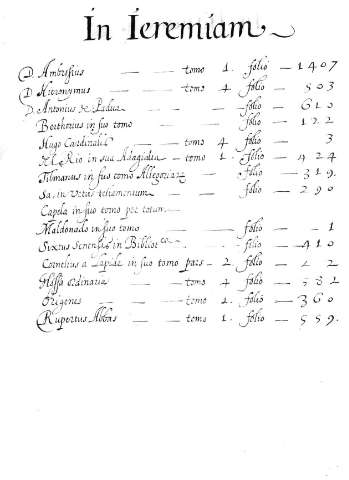 In Ieremiam
D. Ambrosius — — tomo 1. folio — 1407
D. Hieronymus — tomo 4 folio — 503
D. Antonius de Padua — folio — 610
Beethorius in suo tomo — folio — 122
Hugo Cardinalis — tomo 4 folio — 3
del Rio in sua Adagialia — tomo 1. folio — 424
Tilmanus in suo tomo Allegoriar — folio — 319.
Sa, in vetus testamentum — folio — 290
Capela in suo tomo per totum —
Maldonado in suo tomo folio — 1
Sixtus Senensis in Biblioteca — folio — 410
Cornelius a Lapide in suo tomo pars — 2 folio — 22
Glossa ordinaria — tomo 4 folio — 582
Origenes — tomo 1. folio — 360
Rupertus Abbas — tomo 1. folio — 559.